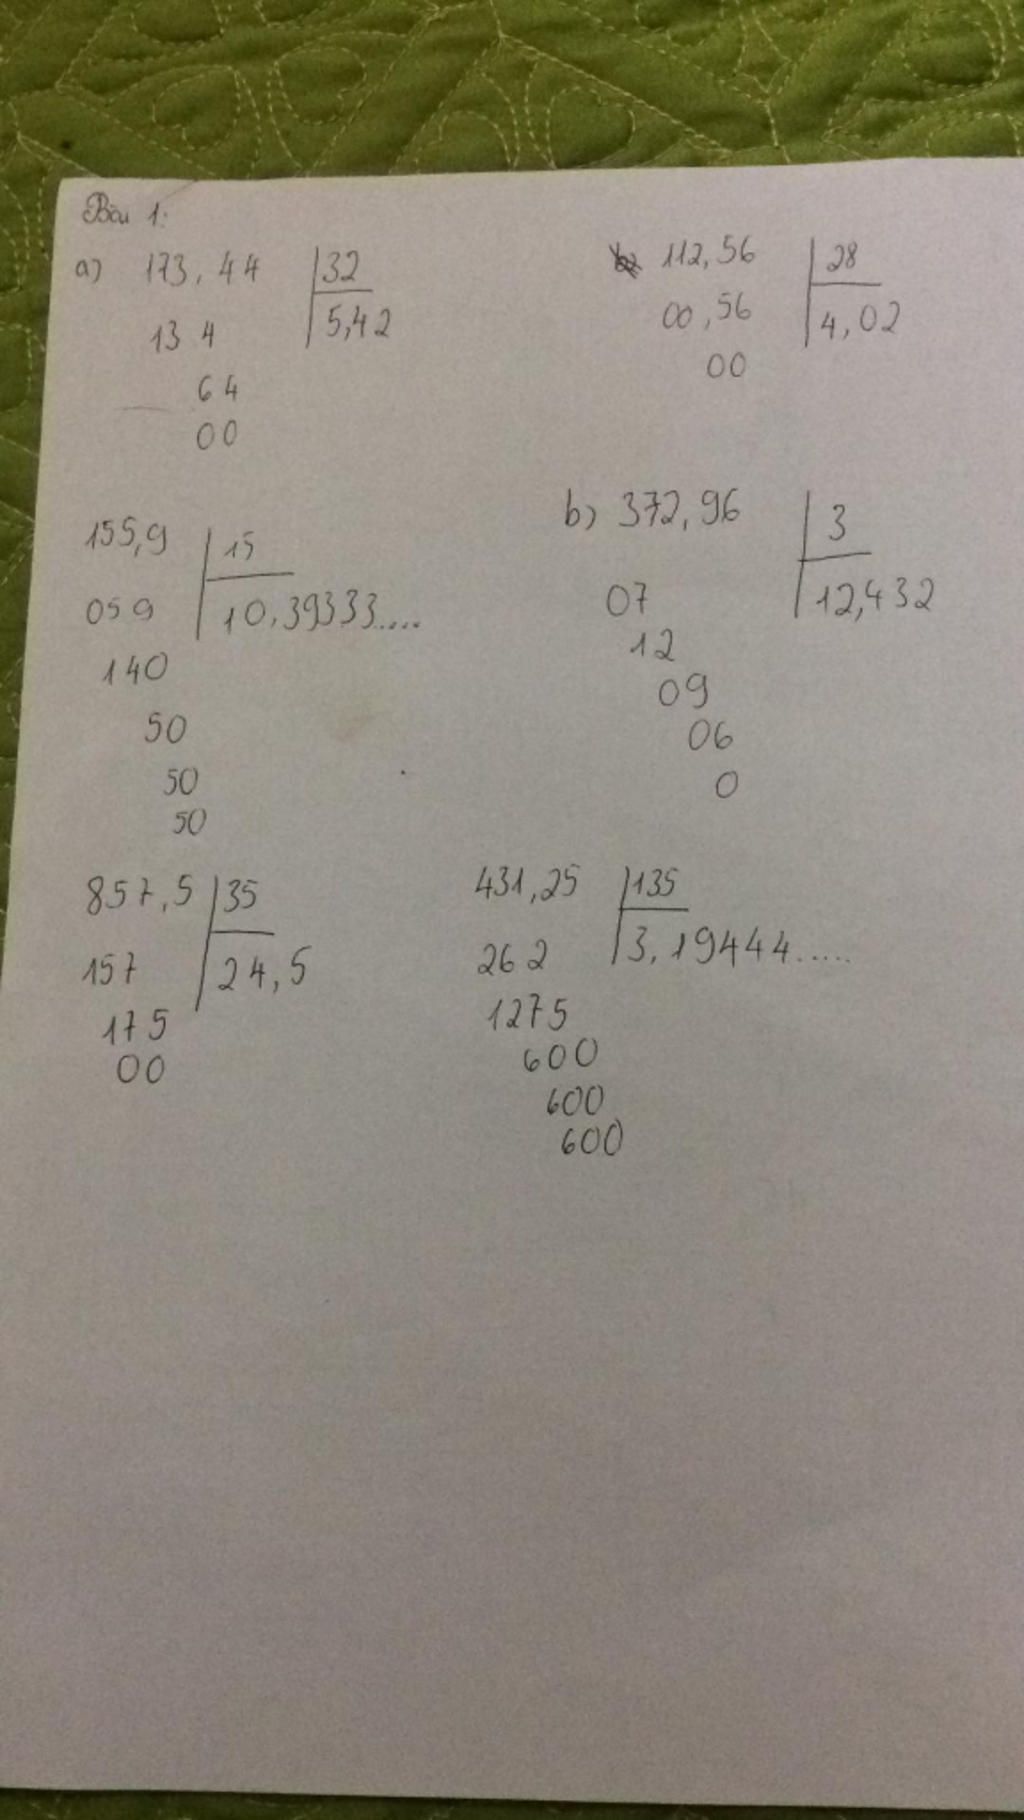 Bài 1:
a) 173,44 32
5,42
13 4
64
00
112,56 28
00,56 4,02
00
155,9 15
059 10,39333.....
140
50
50
50
b) 372,96 3
07 12,432
12
09
06
0
857,5 35
157 24,5
175
00
431,25 135
262 3,19444.....
1275
600
600
600